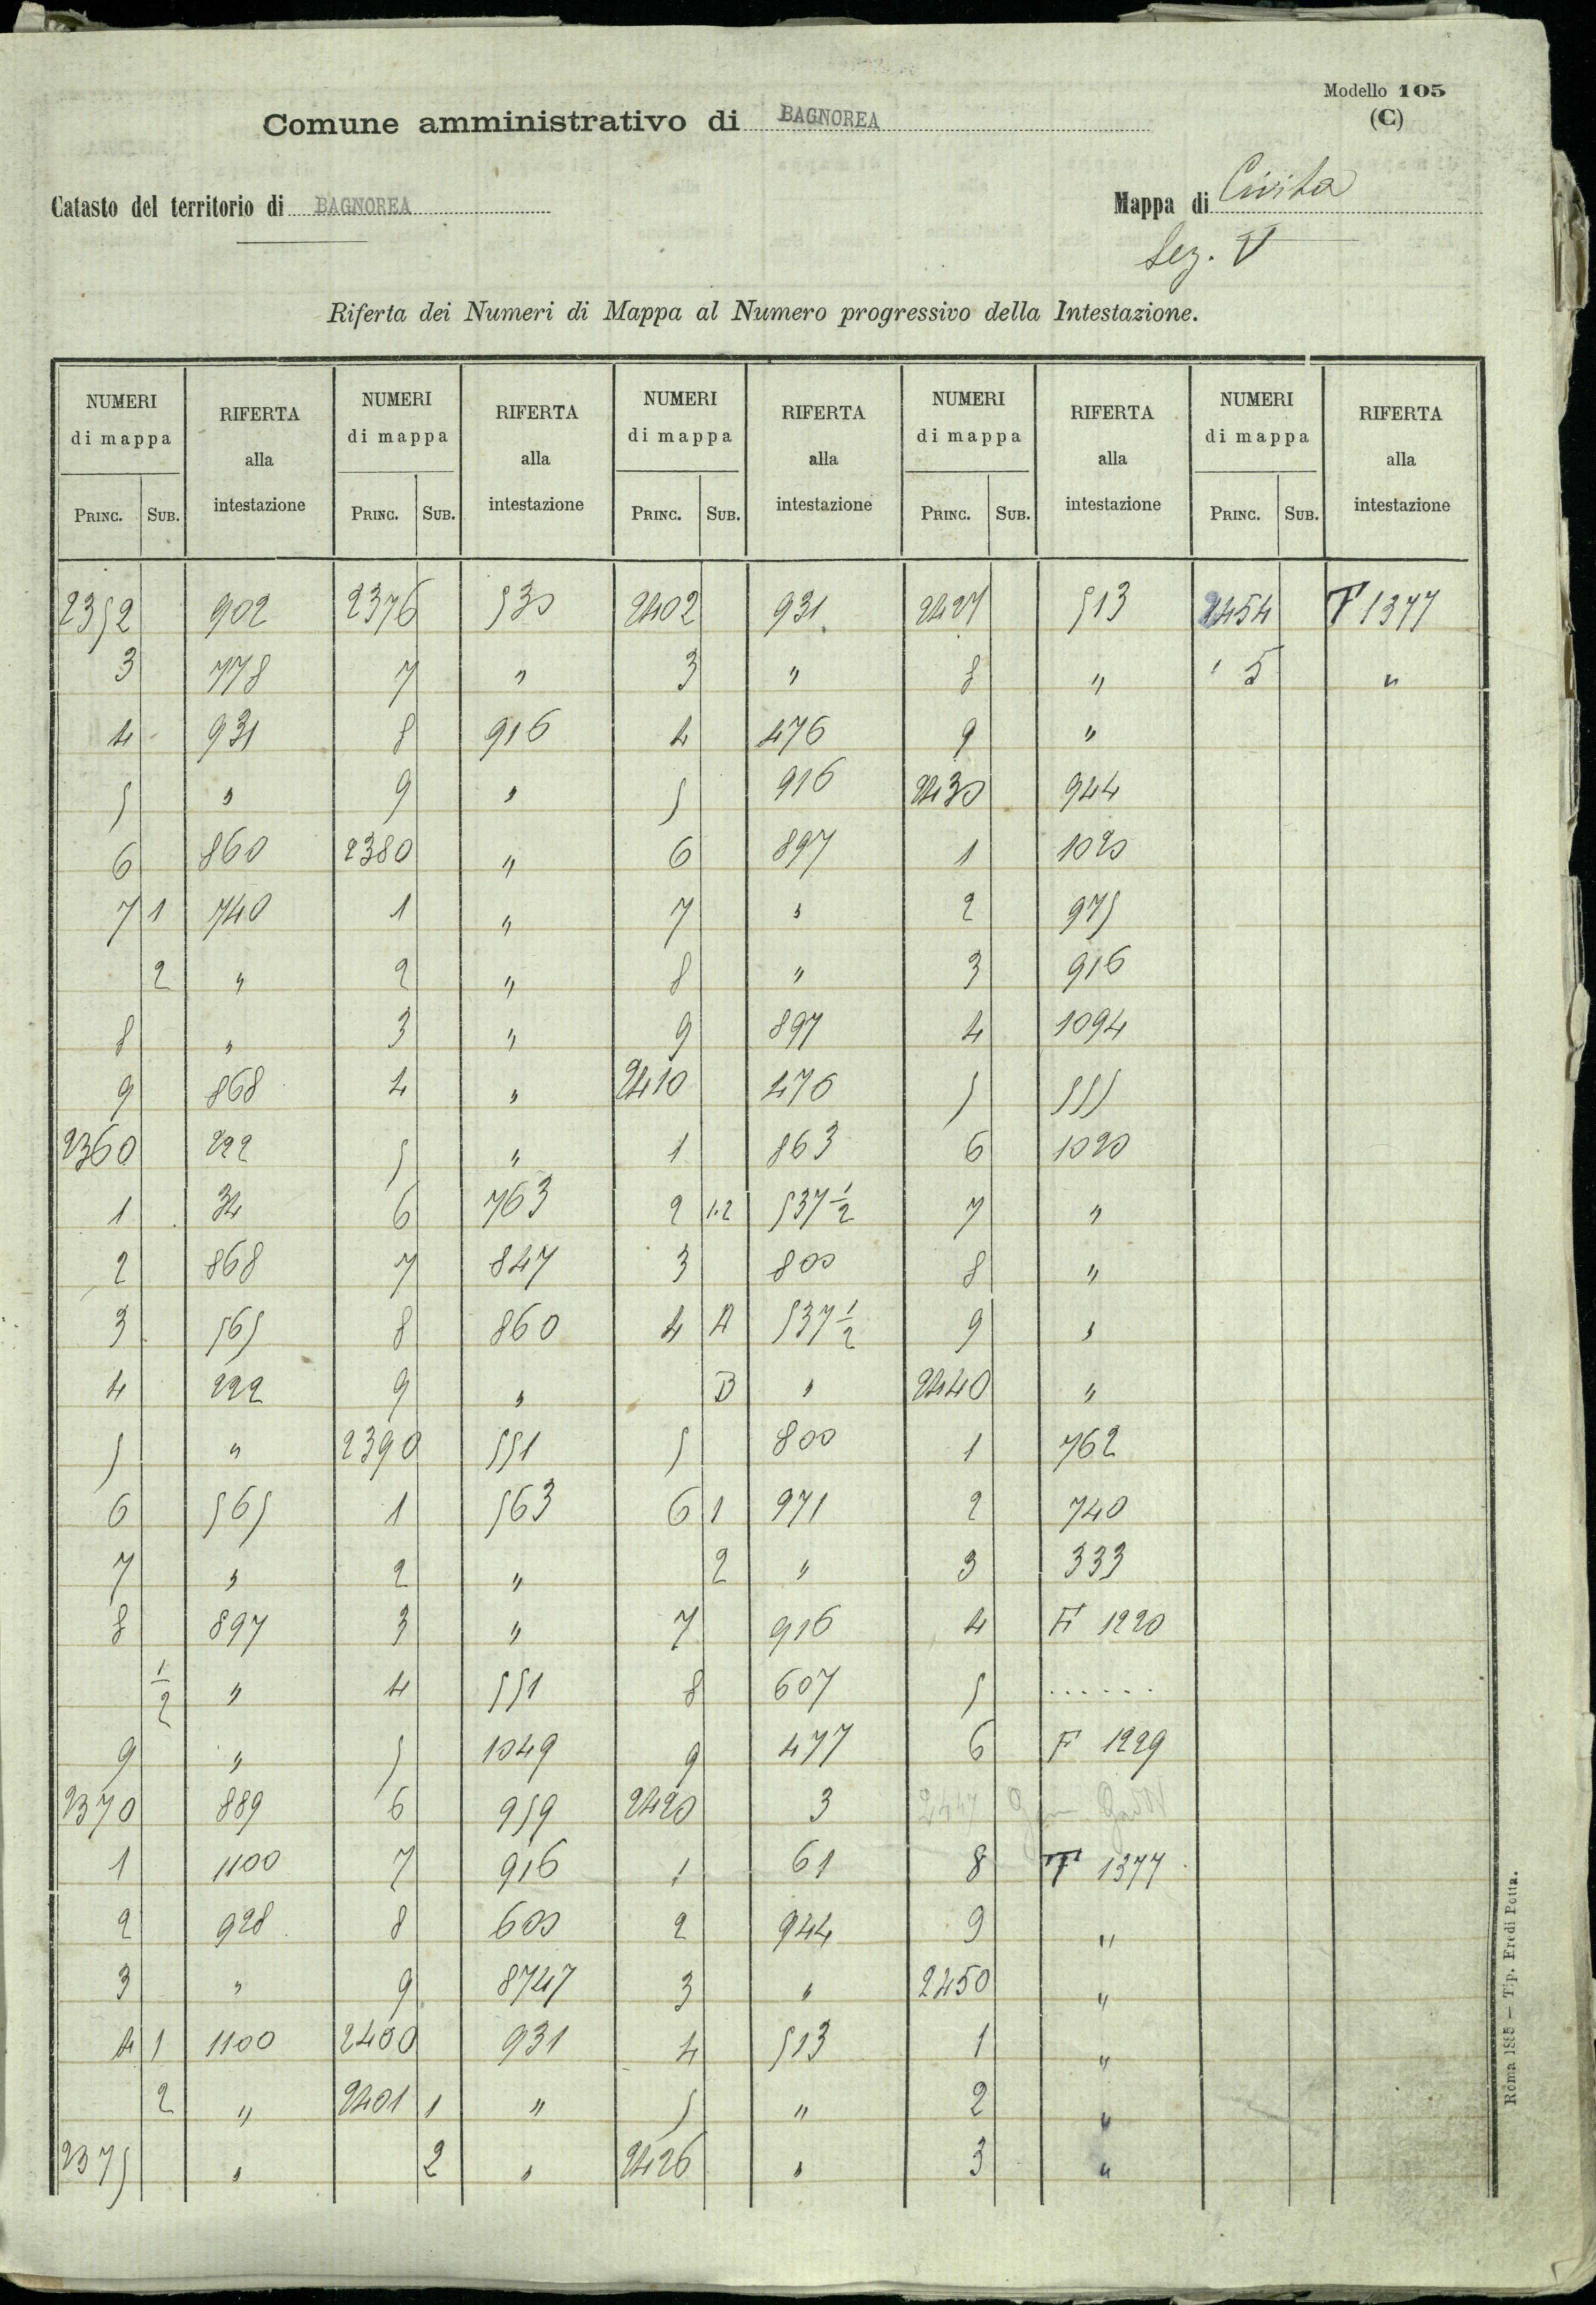 Modello 105
(C)
Comune amministrativo di BAGNOREA
Catasto del territorio di BAGNOREA
Mappa di Civita
Sez. V
Riferta dei Numeri di Mappa al Numero progressivo della Intestazione.
NUMERI di mappa RIFERTA alla intestazione NUMERI di mappa RIFERTA alla intestazione NUMERI di mappa RIFERTA alla intestazione NUMERI di mappa RIFERTA alla intestazione NUMERI di mappa RIFERTA alla intestazione
PRINC. SUB. PRINC. SUB. PRINC. SUB. PRINC. SUB. PRINC. SUB.
2352 902 2376 530 2402 931 2427 513 2454 F 1377
3 778 7 " 3 " 8 " 5 "
4 931 8 916 4 476 9 "
5 " 9 " 5 916 2430 944
6 860 2380 " 6 897 1 1020
7 1 740 1 " 7 " 2 975
2 " 2 " 8 " 3 916
8 " 3 " 9 897 4 1094
9 868 4 " 2410 476 5 555
2360 222 5 " 1 863 6 1020
1 34 6 763 2 1.2 537 1/2 7 "
2 868 7 847 3 800 8 "
3 565 8 860 4 A 537 1/2 9 "
4 222 9 " B " 2440 "
5 " 2390 551 5 800 1 762
6 565 1 563 6 1 971 2 740
7 " 2 " 2 " 3 333
8 897 3 " 7 916 4 F 1220
1/2 " 4 551 8 607 5 ......
9 " 5 1049 9 477 6 F 1229
2370 889 6 959 2420 3 2447
1 1100 7 916 1 61 8 F 1377
2 928 8 600 2 944 9 "
3 " 9 8747 3 " 2450 "
4 1 1100 2400 931 4 513 1 "
2 " 2401 1 " 5 " 2 "
2375 " 2 " 2426 " 3 "
Roma 1885 — Tip. Eredi Botta.